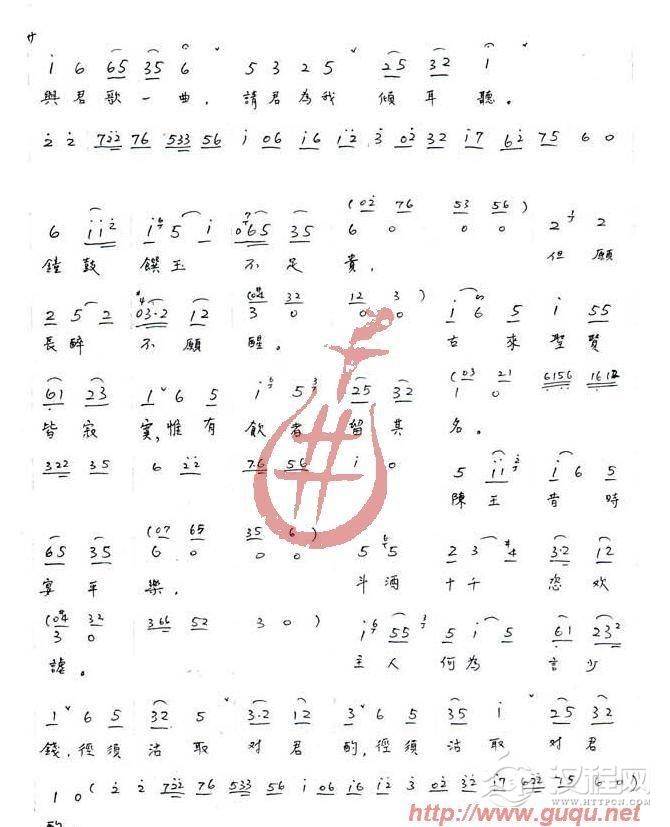 サ
i 6 65 35 6 ˅ 5 3 2 5 ˅ 25 32 i ˅
與君歌一曲，請君為我傾耳聽。
2 2 722 76 533 56 i 06 i6 i2 3 02 32 i7 62 75 6 0
6 ii2 i5 i 065 35 (02 76 53 56)
6 0 0 0 2 2
鐘鼓饌玉不足貴，但願
2 5 2 03·2 12 (04 32 12 3)
3 0 0 0 i 6 5 i 55
長醉不願醒。古來聖賢
61 23 1 ˅ 6 5 i 5 25 32 (03 21 6156 1612
1 0
皆寂寞，惟有飲者留其名。
322 35 6 22 76 56 i 0 5 ii2 i 6 5
陳王昔時
65 35 (07 65 35 6)
6 0 0 0 5 5 2 3 #4 3·2 12
宴平樂，斗酒十千恣歡
(04 32 366 52 3 0)
3 0 i 55 5 i 5 61 232
謔。主人何為言少
1 ˅ 6 5 32 5 ˅ 3·2 12 3 ˅ 6 5 35 i ˅ 25 32
錢，徑須沽取对君酌，徑須沽取对君
1 0 (2 2 722 76 533 56 i 06 i6 i2 3 02 32 i7 622 75 6 0)
酌
汉程网
HTTPCN.COM
http://www.guqu.net